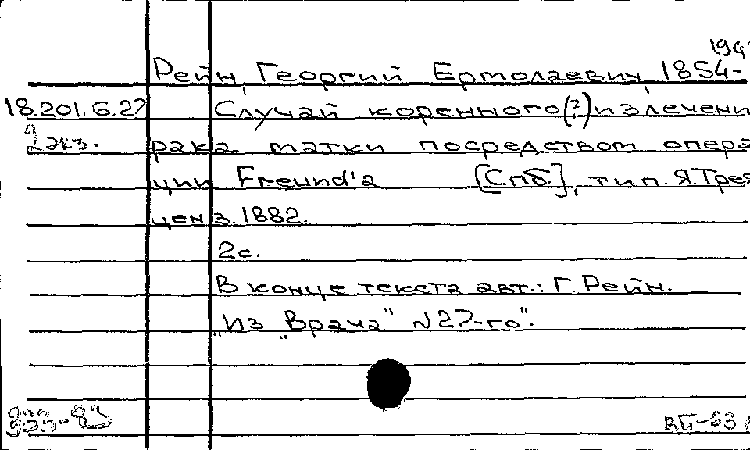 194
Рейн, Георгий Ермолаевич, 1854-
18.201.6.27 Случай коренного(?) излечени
2 экз. рака матки посредством опера
ции Freund'a [Спб.], тип. Я.Трей
ценз. 1882.
2с.
В конце текста авт.: Г. Рейн.
"Из "Врача" N27-го".